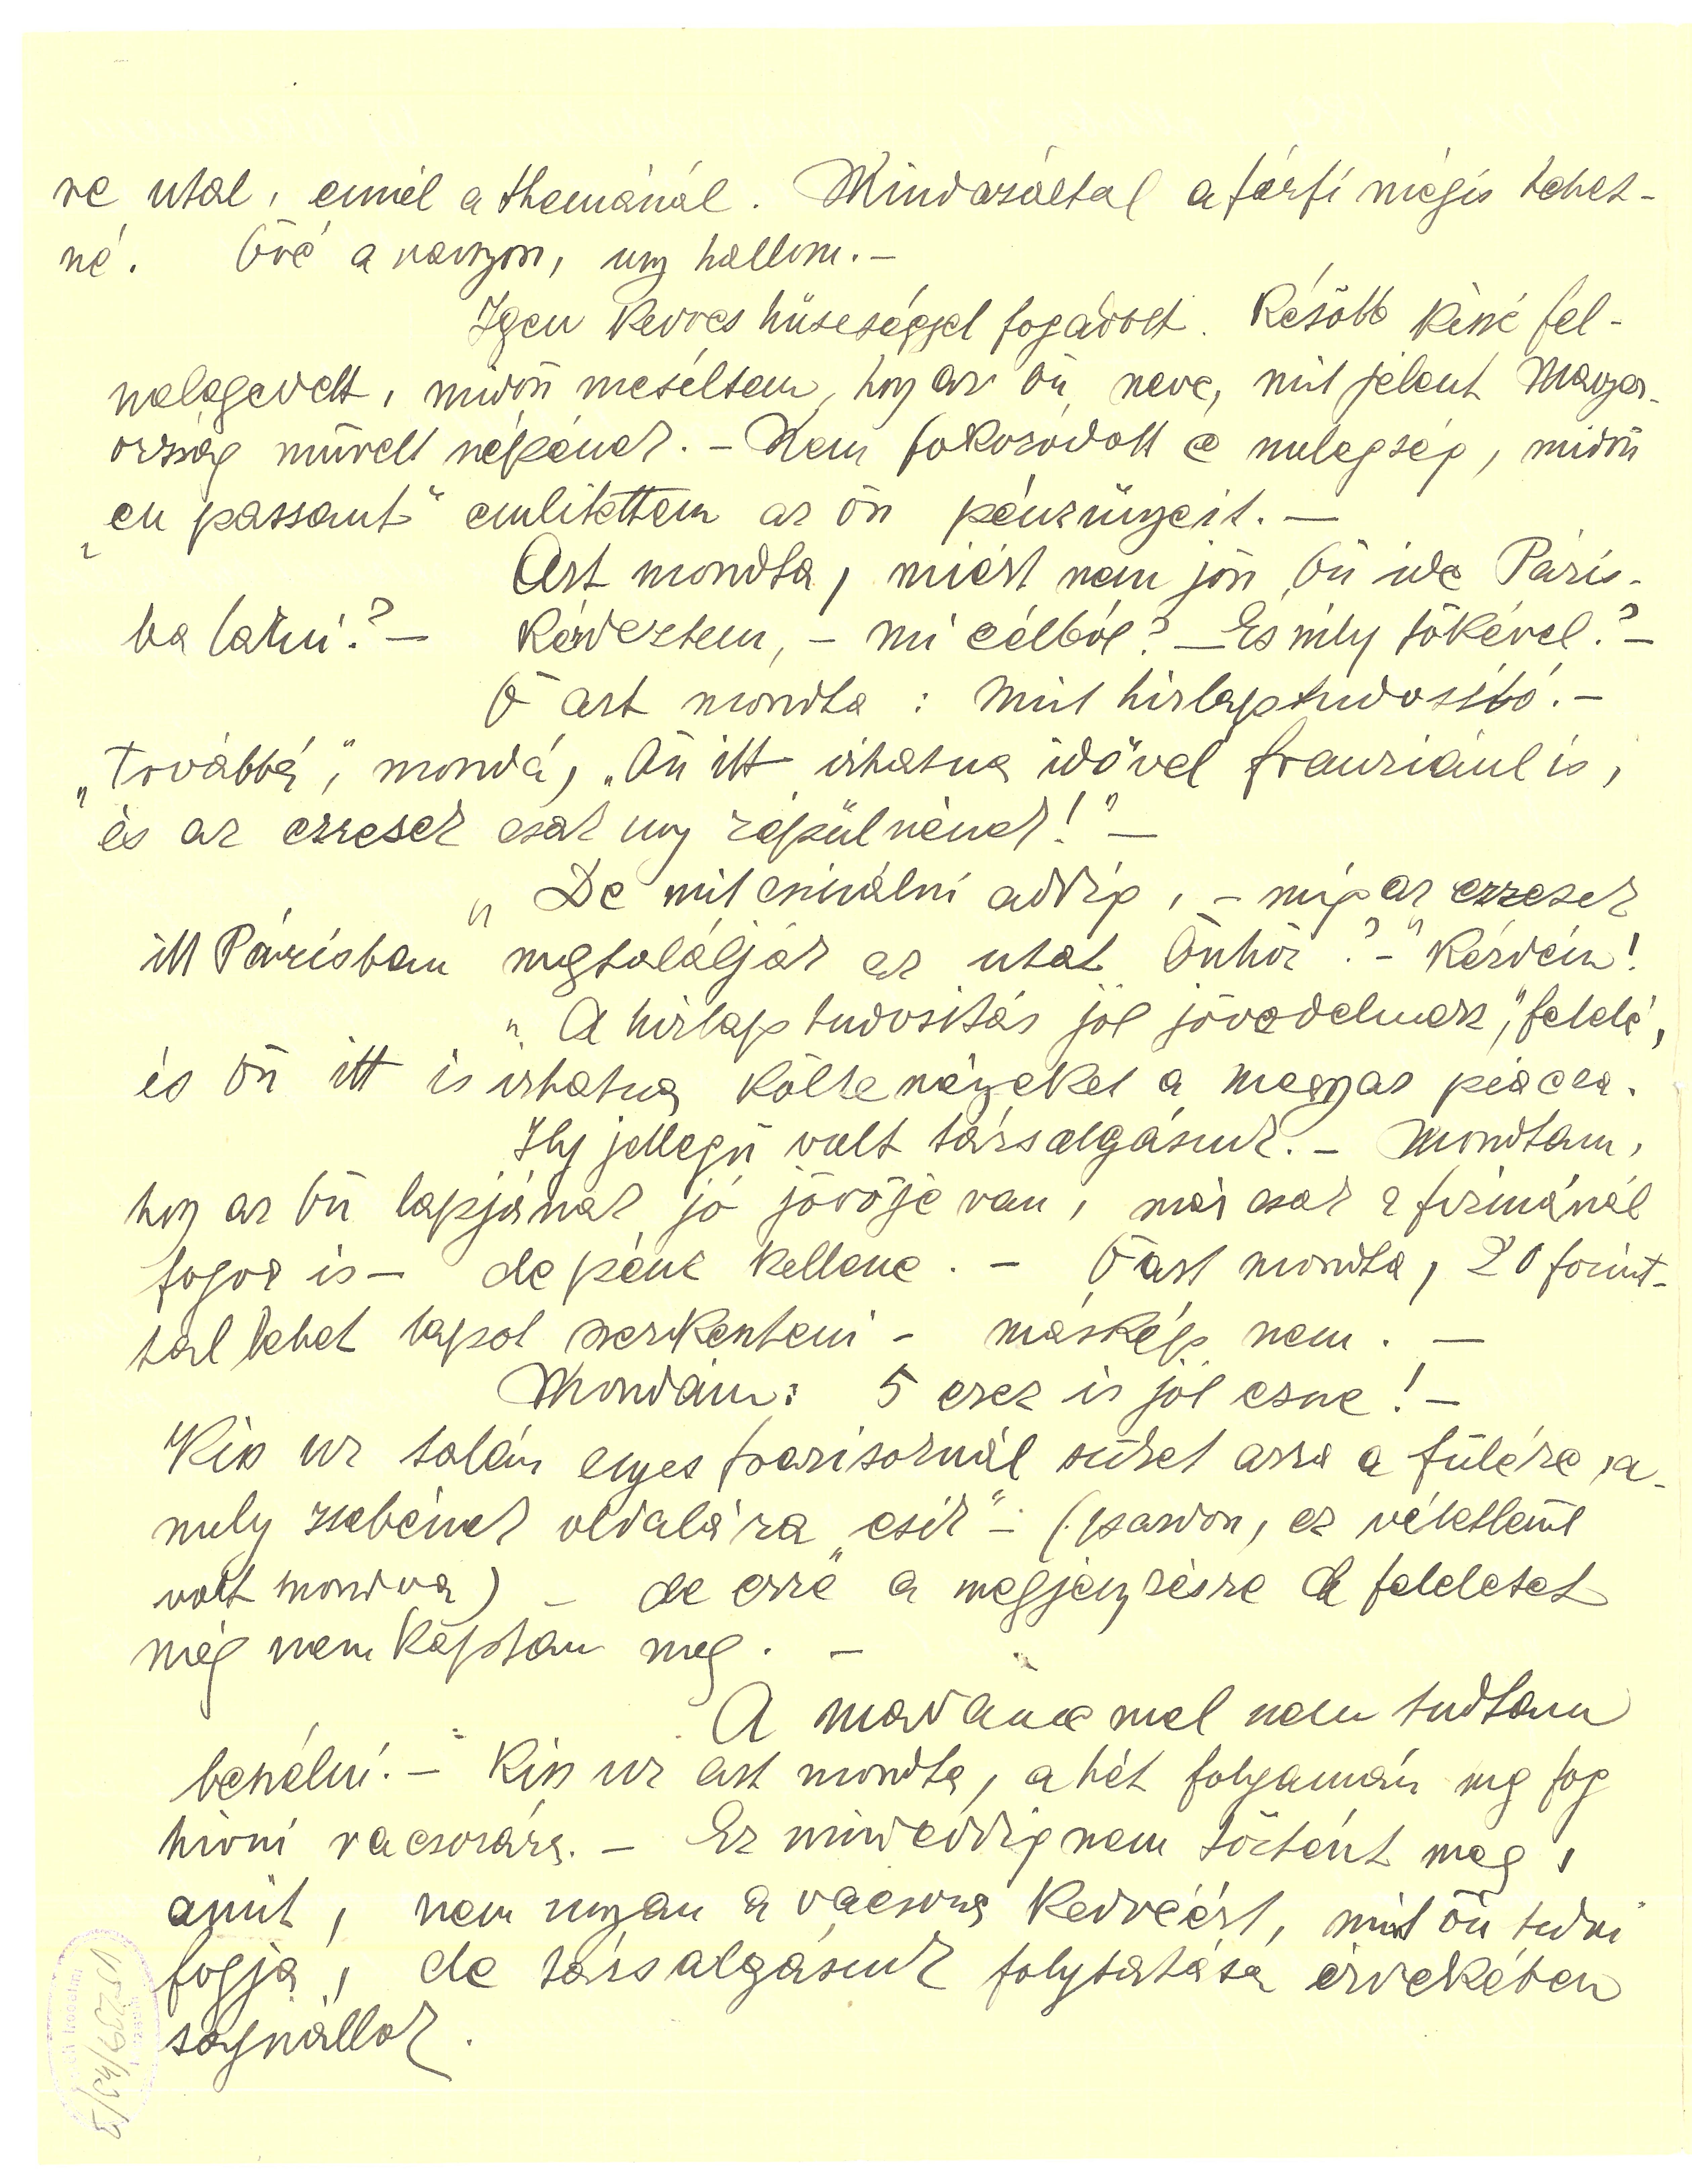 re utal, ennél a themánál. Mindazáltal a férfi mégis tehet-
né. Övé a vagyon, ugy hallom. –
Igen kevés hűséggel fogadott. Később kissé fel-
melegedett, midőn meséltem, hogy az Ön neve, mit jelent Magyar-
ország művelt népének. – Nem fokozódott e melegség, midőn
„en passant" emlitettem az ön pénzügyeit. –
Azt mondta, miért nem jön Ön ide Páris-
ba lakni? – Kérdeztem, – mi célból? – És mily tőkével? –
Ő azt mondta: mint hirlaptudósitó. –
„Továbbá," mondá, „Ön itt irhatna idővel franciául is,
és az ezresek csak ugy repülnének!" –
„De mit csinálni addig, – mig az ezresek
itt Párisban" megtalálják az utat Önhöz? –" kérdém!
„A hirlaptudositás jól jövedelmez," felelé,
és Ön itt is irhatna költeményeket a magyar piacra.
Ily jellegü volt társalgásunk. – Mondtam,
hogy az Ön lapjának jó jövője van, már csak a firmánál
fogva is – de pénz kellene. – Ő azt mondta, 20 forint-
tal lehet lapot szerkeszteni – máskép nem. –
Mondám: 5 ezer is jól esne! –
Kiss ur talán egyes frazisoknál süket arra a fülére, a-
mely zsebének oldalára „esik" – (pardon, ez véletlenül
volt mondva) – de erre a megjegyzésre a feleletet
még nem kaptam meg. –
A madame mal nem tudtam
beszélni. – Kiss ur azt mondta, a hét folyamán meg fog
hivni vacsorára. – Ez mindeddig nem történt meg,
amit, nem ugyan a vacsora kedvéért, mint ön tudni
fogja, de társalgásunk folytatása érdekében
sajnállok.